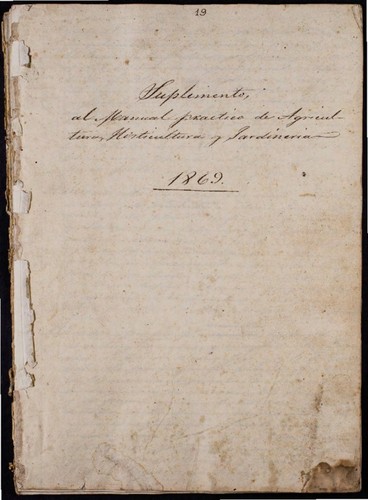 19
Suplemento,
al Manual practico de Agricul-
tura, Horticultura y Jardineria
1869.